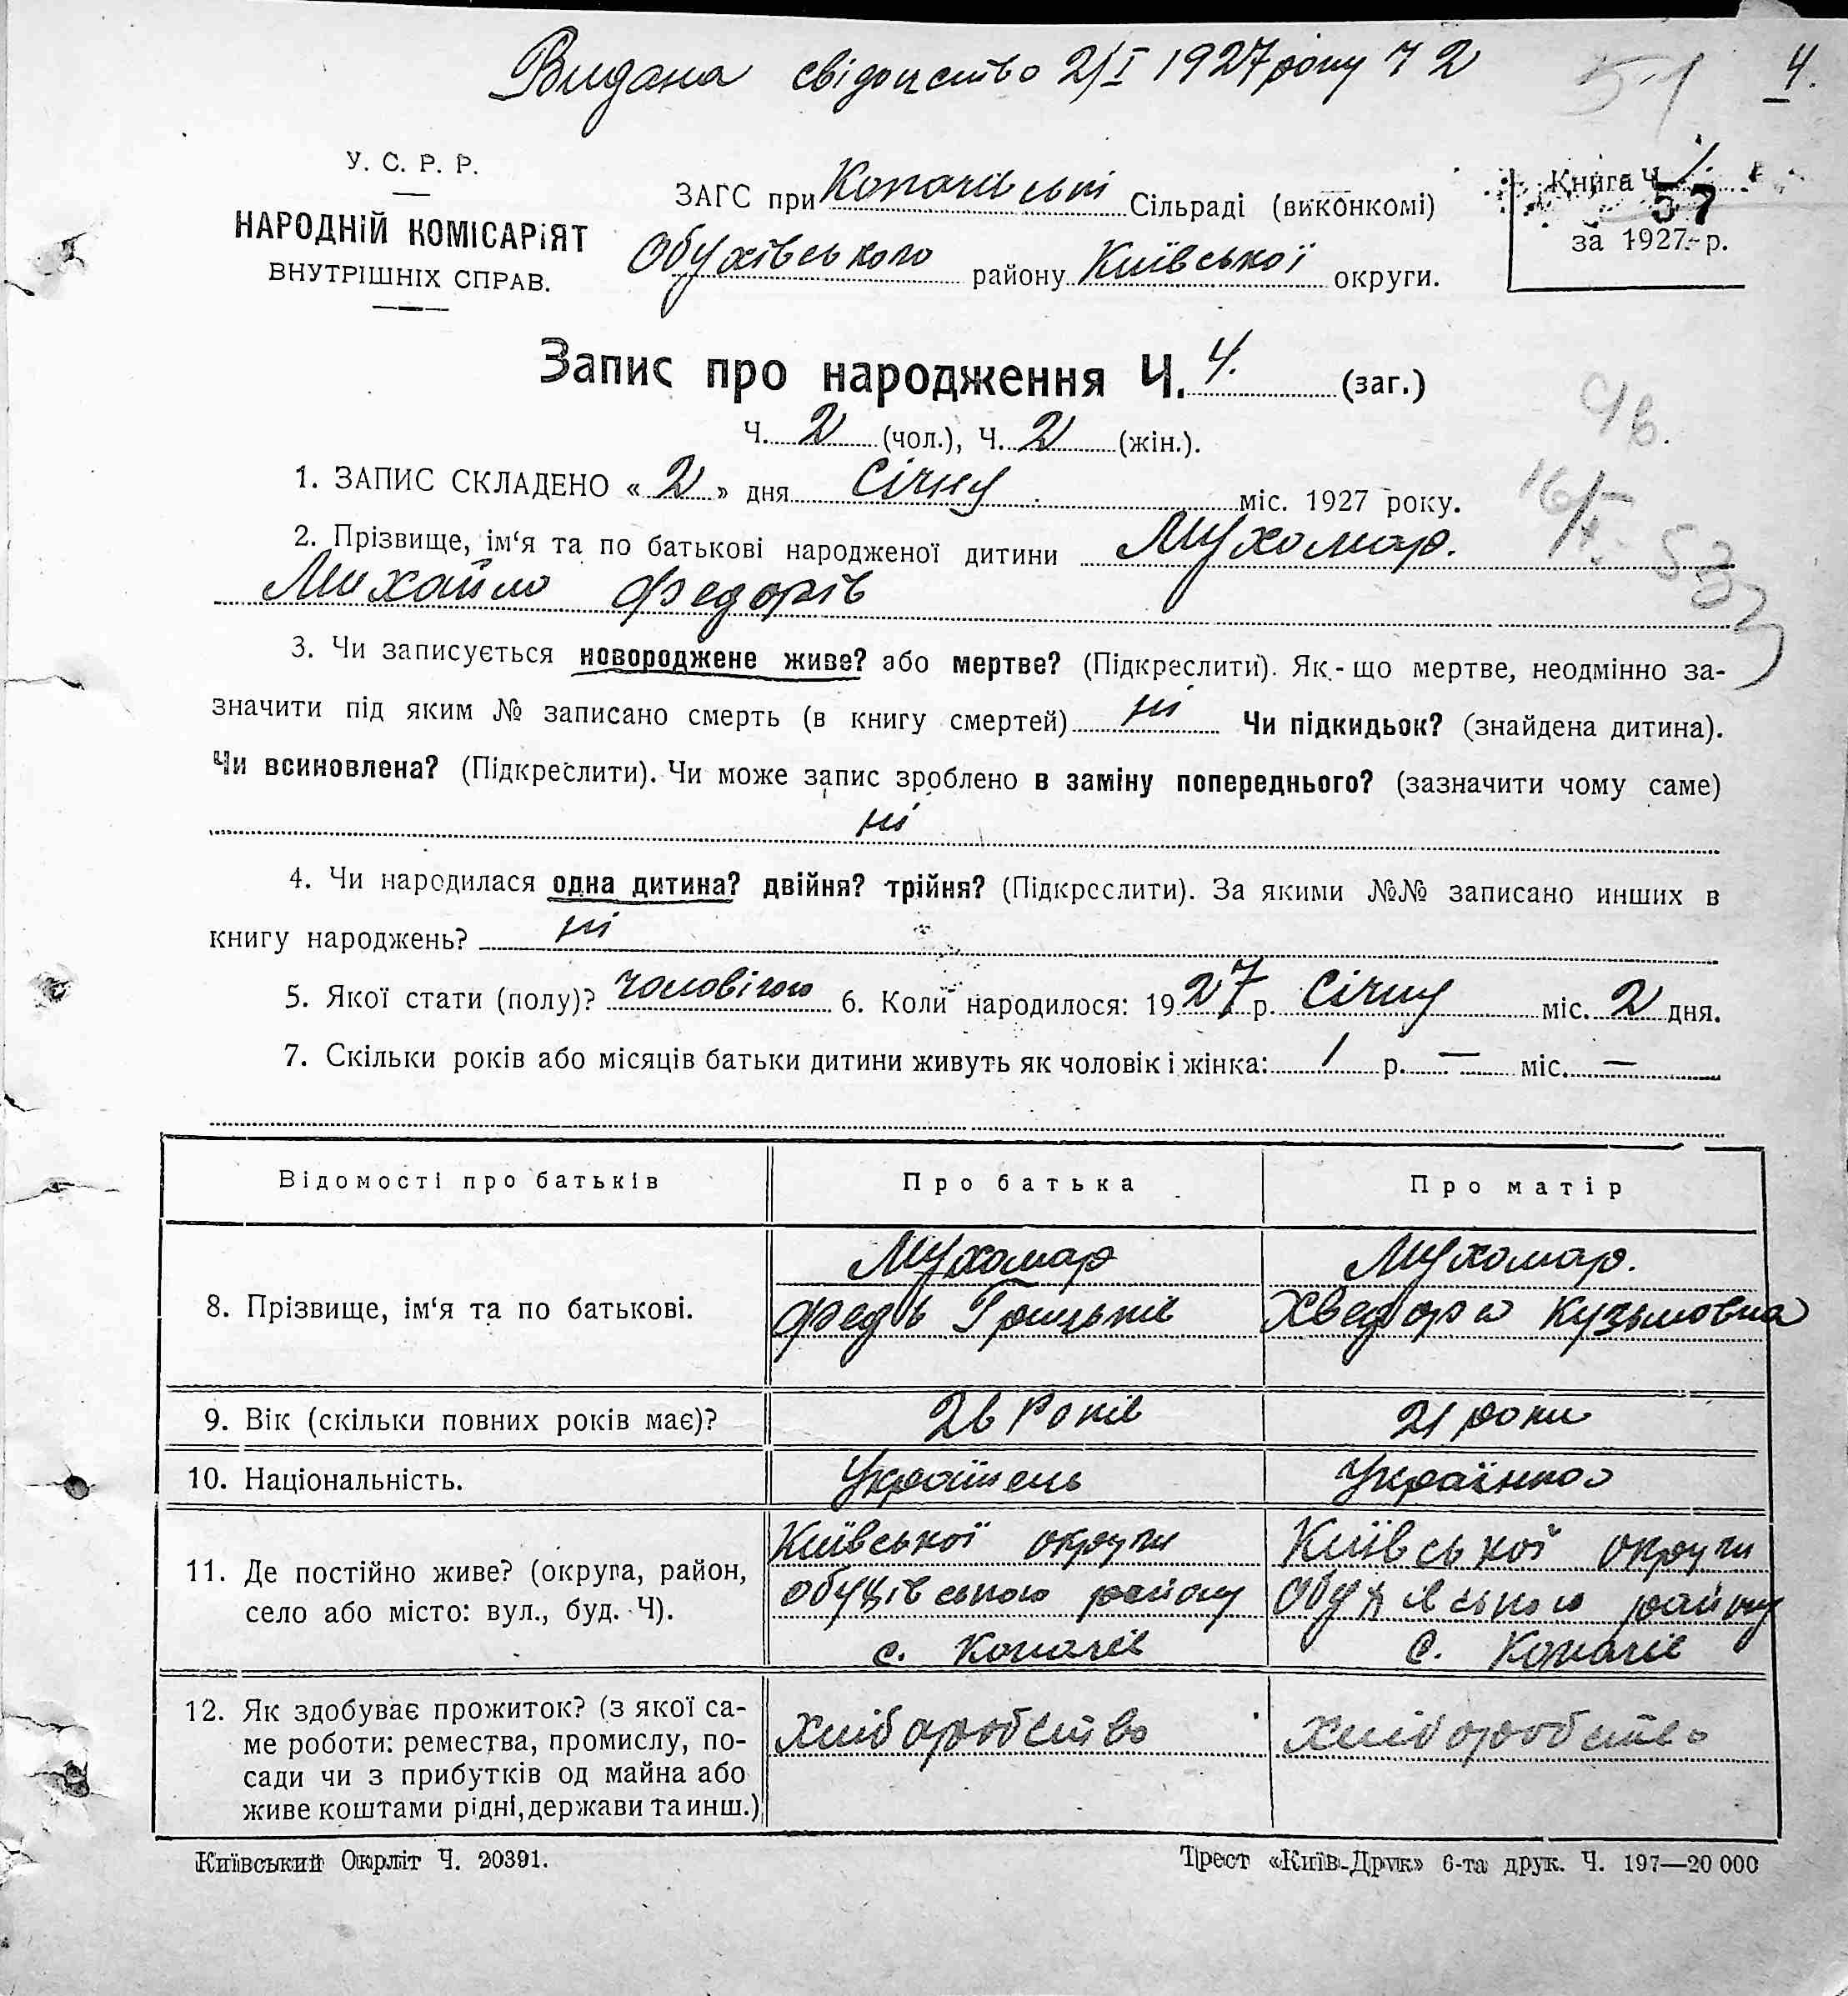 Видана свідоцтво 2/I 1927 року Ч 2
51
4.
У. С. Р. Р.
НАРОДНІЙ КОМІСАРІЯТ
ВНУТРІШНІХ СПРАВ.
ЗАГС при Копачівські Сільраді (виконкомі)
Обухівського району Київської округи.
Книга Ч. 1
57
за 1927 р.
Запис про народження Ч. 4. (заг.)
Ч. 2 (чол.), Ч. 2 (жін.).
1. ЗАПИС СКЛАДЕНО « 2 » дня Січня міс. 1927 року.
2. Прізвище, ім‘я та по батькові народженої дитини Мухомор.
Михайло Федорів
3. Чи записується новороджене живе? або мертве? (Підкреслити). Як-що мертве, неодмінно за-
значити під яким № записано смерть (в книгу смертей) ні Чи підкидьок? (знайдена дитина).
Чи всиновлена? (Підкреслити). Чи може запис зроблено в заміну попереднього? (зазначити чому саме)
ні
4. Чи народилася одна дитина? двійня? трійня? (Підкреслити). За якими №№ записано инших в
книгу народжень? ні
5. Якої стати (полу)? чоловічого 6. Коли народилося: 1927 р. Січня міс. 2 дня.
7. Скільки років або місяців батьки дитини живуть як чоловік і жінка: 1 р. — міс. —
Відомості про батьків
Про батька
Про матір
8. Прізвище, ім‘я та по батькові.
Мухомор
Федь Грицьків
Мухомор.
Хведора Кузьмовна
9. Вік (скільки повних років має)?
26 Років
21 роки
10. Національність.
Українець
Українка
11. Де постійно живе? (округа, район,
село або місто: вул., буд. Ч).
Київської округи
Обухівського району
с. Копачів
Київської округи
Обухівського району
с. Копачів
12. Як здобуває прожиток? (з якої са-
ме роботи: ремества, промислу, по-
сади чи з прибутків од майна або
живе коштами рідні, держави та инш.)
хліборобство
хліборобство
Київський Окрліт Ч. 20391.
Трест «Київ-Друк» 6-та друк. Ч. 197—20 000